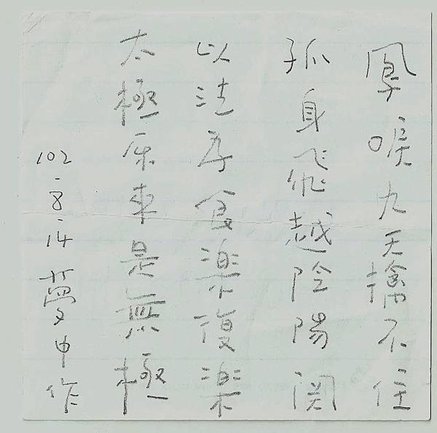 鳳唳九天擒不住
孤身飛越陰陽関
以法為食樂復樂
太極原來是無極
102.8.14 夢中作